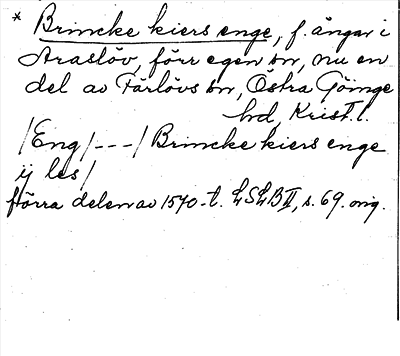 * Brincke kiers enge, f. ängar i
Araslöv, förr egen by, nu en
del av Färlövs sn, Östra Göinge
hd, Krist. l.
/Eng/---/ Brincke kiers enge
ij les/
förra delen av 1570-t. LSLB II, s. 69. orig.